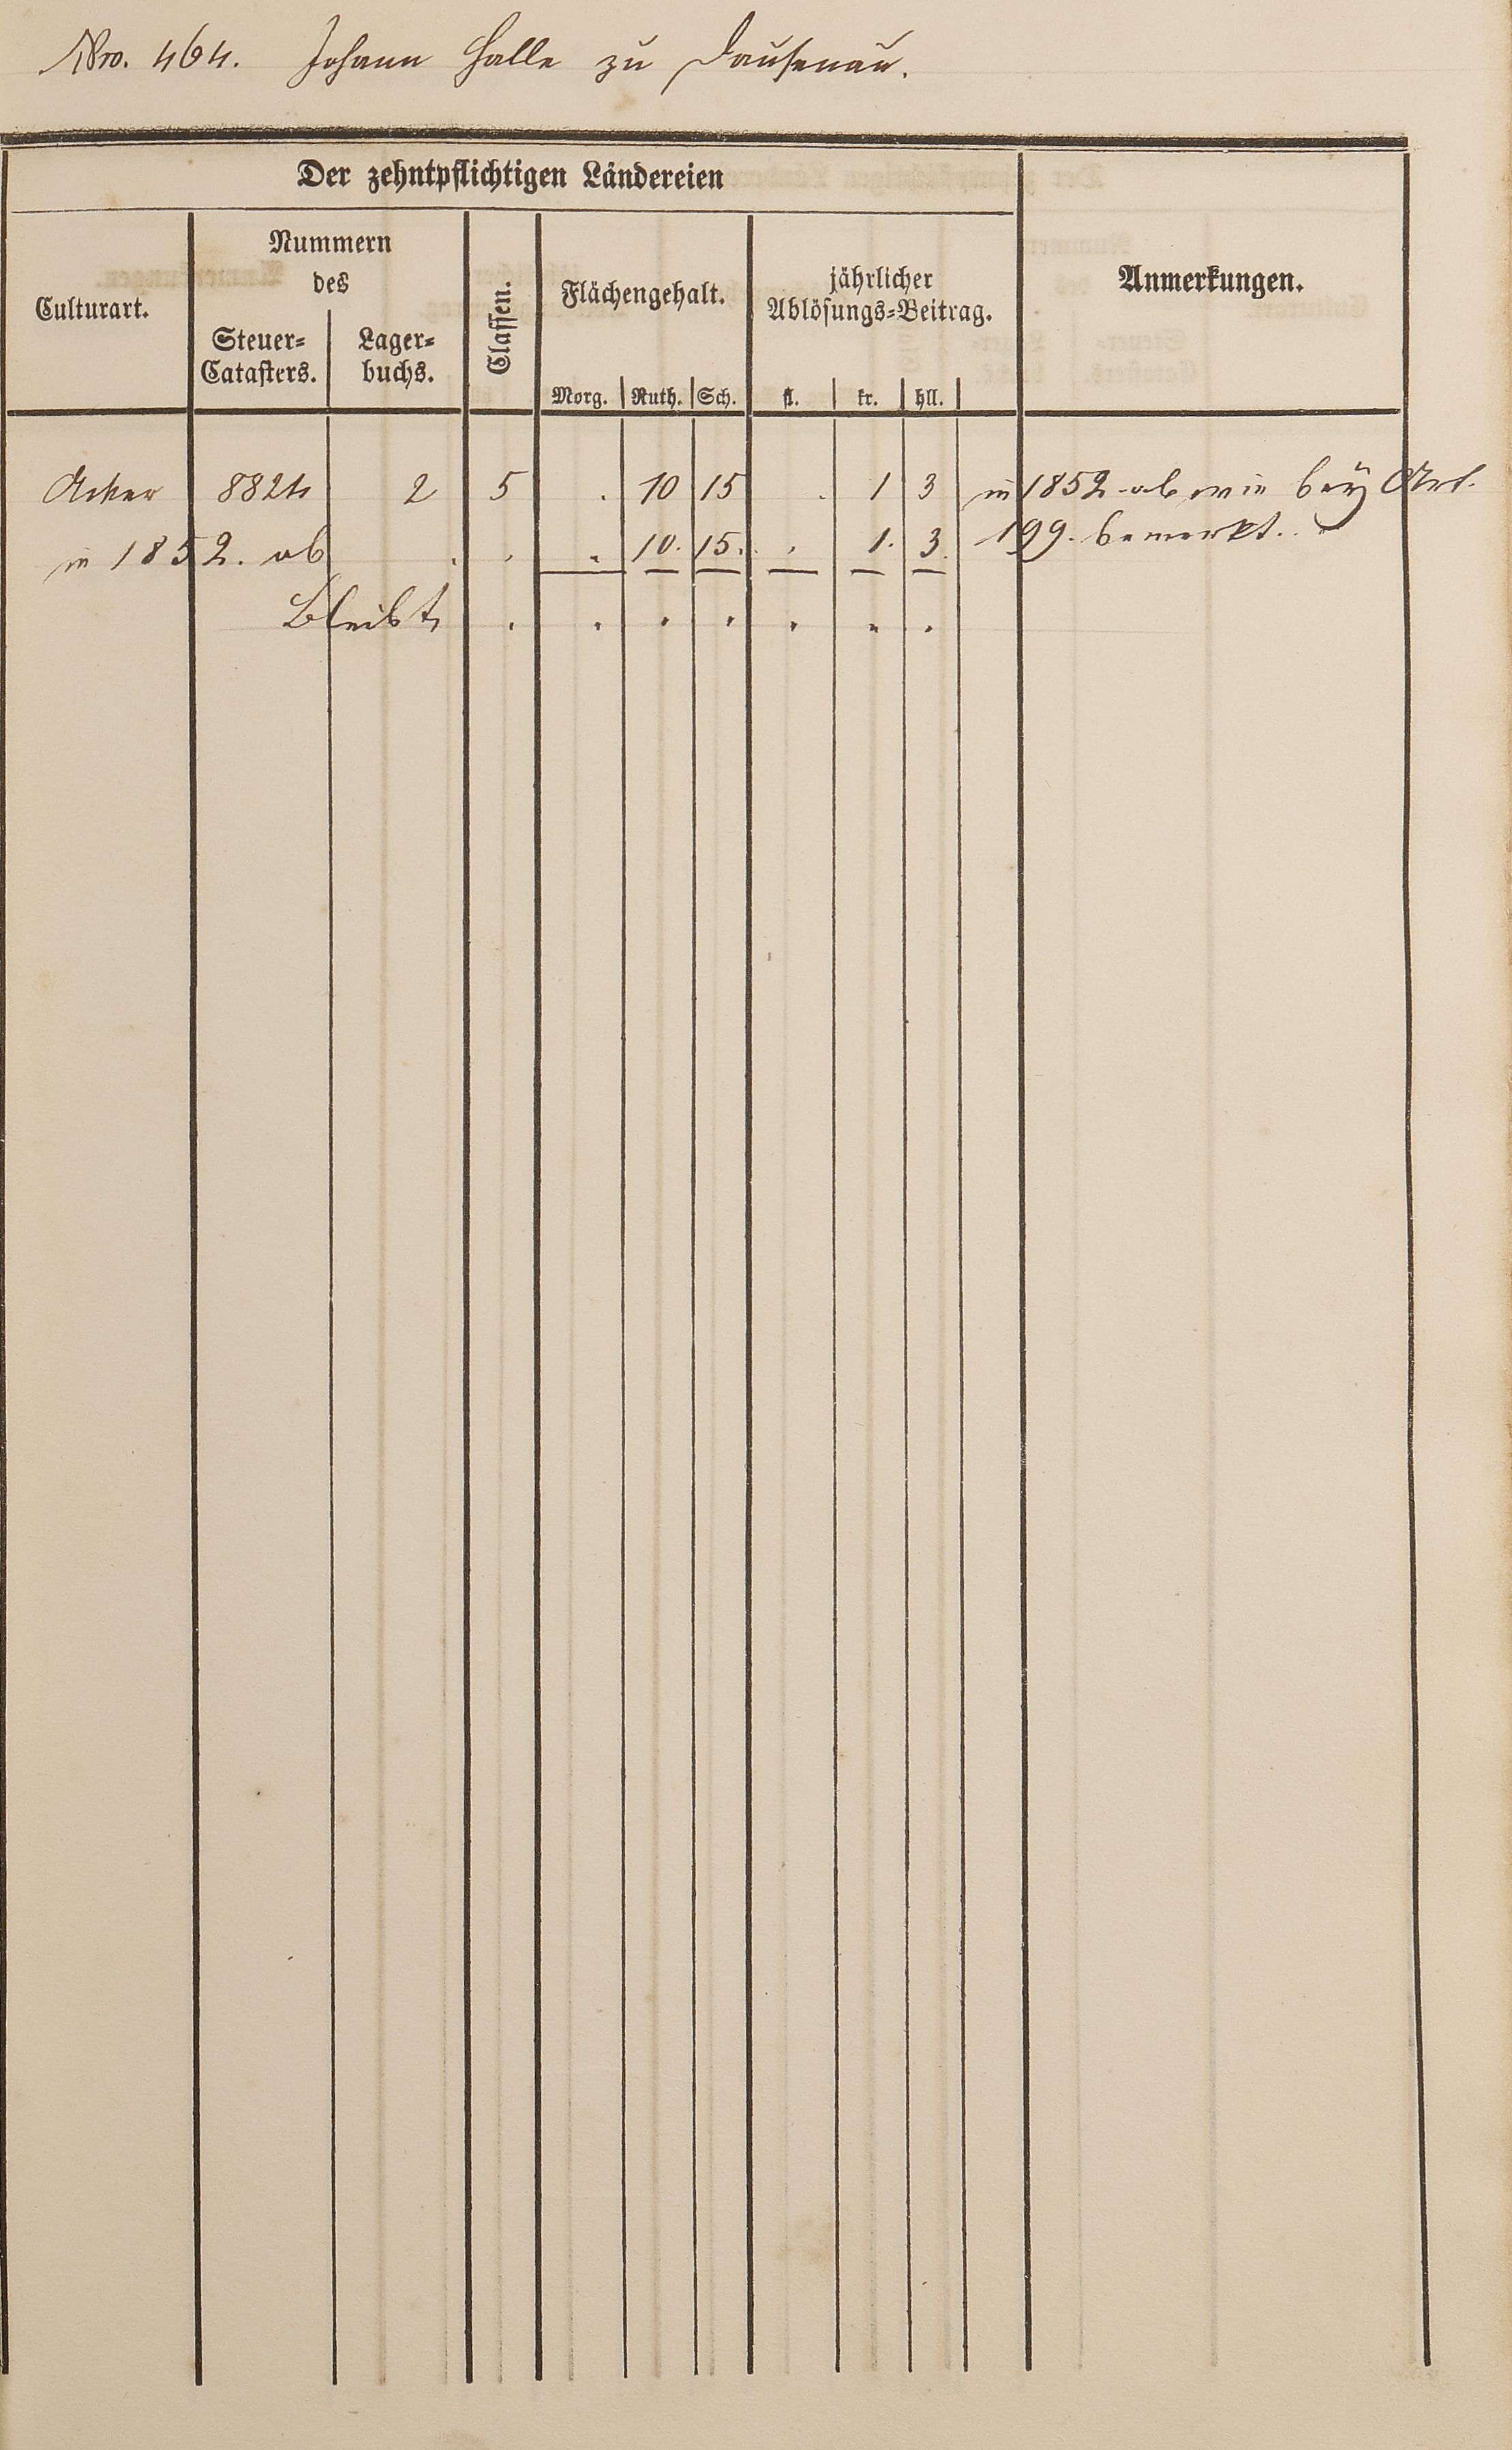 Nro. 464. Johann Halle zu Dausenau.
Der zehntpflichtigen Ländereien
Culturart.
Nummern
des
Steuer-
Catasters.
Lager-
buchs.
Classen.
Flächengehalt.
Morg. Ruth. Sch.
jährlicher
Ablösungs-Beitrag.
fl. kr. hll.
Anmerkungen.
Acker 8824 2 5 . 10 15 . 1 3 in 1852 ab wie bey Art.
in 1852. ab . . . 10. 15. . 1. 3. 199. bemerkt.
Bleibt . . . . . . .